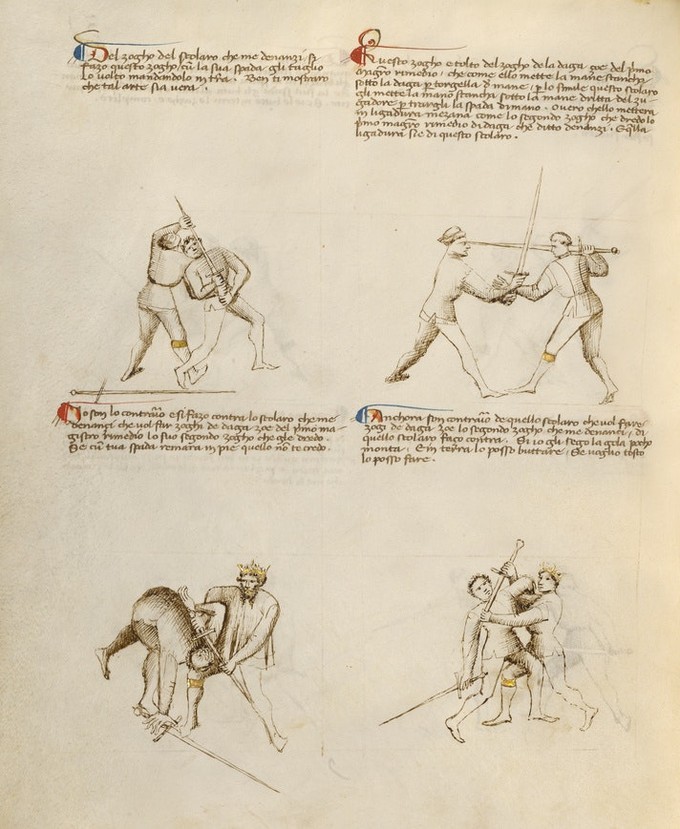 Del zogho del scolaro che me denanzi si
fazo questo zogho / cũ la sua spada gli taglio
lo volto mandandolo in tr̃a. Ben ti mostraro
che tal arte sia vera.
Questo zogho e tolto del zogho de la daga zoe del p̃mo
magro rimedio / che come ello mette la mane stancha
sotto la daga p torgella d mane / p lo simile questo scolaro
gli mette la mano stancha sotto la mane dritta del zu
gadore p trargli la spada di mano. Overo chello mettera
in ligadura mezana come lo segondo zogho che dredo lo
p̃mo magro rimedio di daga che ditto denanzi. E q̃lla
ligadura si e di questo scolaro.
Io son lo contrario e si fazo contra lo scolaro che me
denanci che vol far zoghi de daga zoe del p̃mo ma
gistro rimedio lo suo segondo zogho che gle dredo.
Se cũ tua spada remara in pie quello nõ te credo.
Anchora son contrario de quello scolaro che vol fare
zogi de daga zoe lo segondo zogho che me denanci / di
quello scolaro faço contra. Si io gli sego la gola pocho
monta. E in terra lo posso buttare / se voglio tosto
lo posso fare.